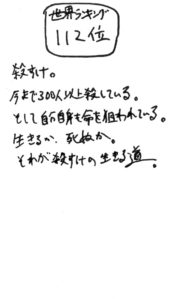 世界ランキング
112位
殺すけ。
今まで300人以上殺している。
そして自分自身も命を狙われている。
生きるか、死ぬか。
それが殺すけの生きる道。